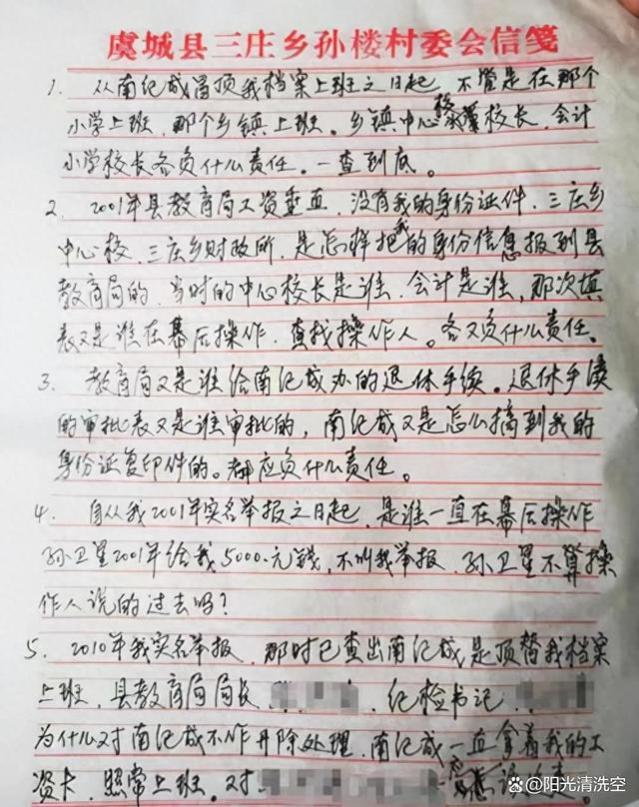 虞城县三庄乡孙楼村委会信笺
1. 从南纪成冒顶我档案上班之日起, 不管是在那个
小学上班, 那个乡镇上班。乡镇中心校校长, 会计
小学校长各负什么责任。一查到底。
2. 2001年县教育局工资垂直, 没有我的身份证件, 三庄乡
中心校, 三庄乡财政所, 是怎样把我的身份信息报到县
教育局的, 当时的中心校长是谁, 会计是谁, 那次填
表又是谁在幕后操作, 查找操作人。各又负什么责任。
3. 教育局又是谁给南纪成办的退休手续。退休手续
的审批表又是谁审批的, 南纪成又是怎么搞到我的
身份证复印件的。都应负什么责任。
4. 自从我2001年实名举报之日起, 是谁一直在幕后操作
孙卫星2001年给我5000.元钱, 不叫我举报, 孙卫星不算操
作人说的过去吗?
5. 2010年我实名举报, 那时已查出南纪成是顶替我档案
上班, 县教育局局长 纪检书记
为什么对南纪成不作开除处理, 南纪成一直拿着我的工
资卡, 照常上班。对
@阳光清洗空